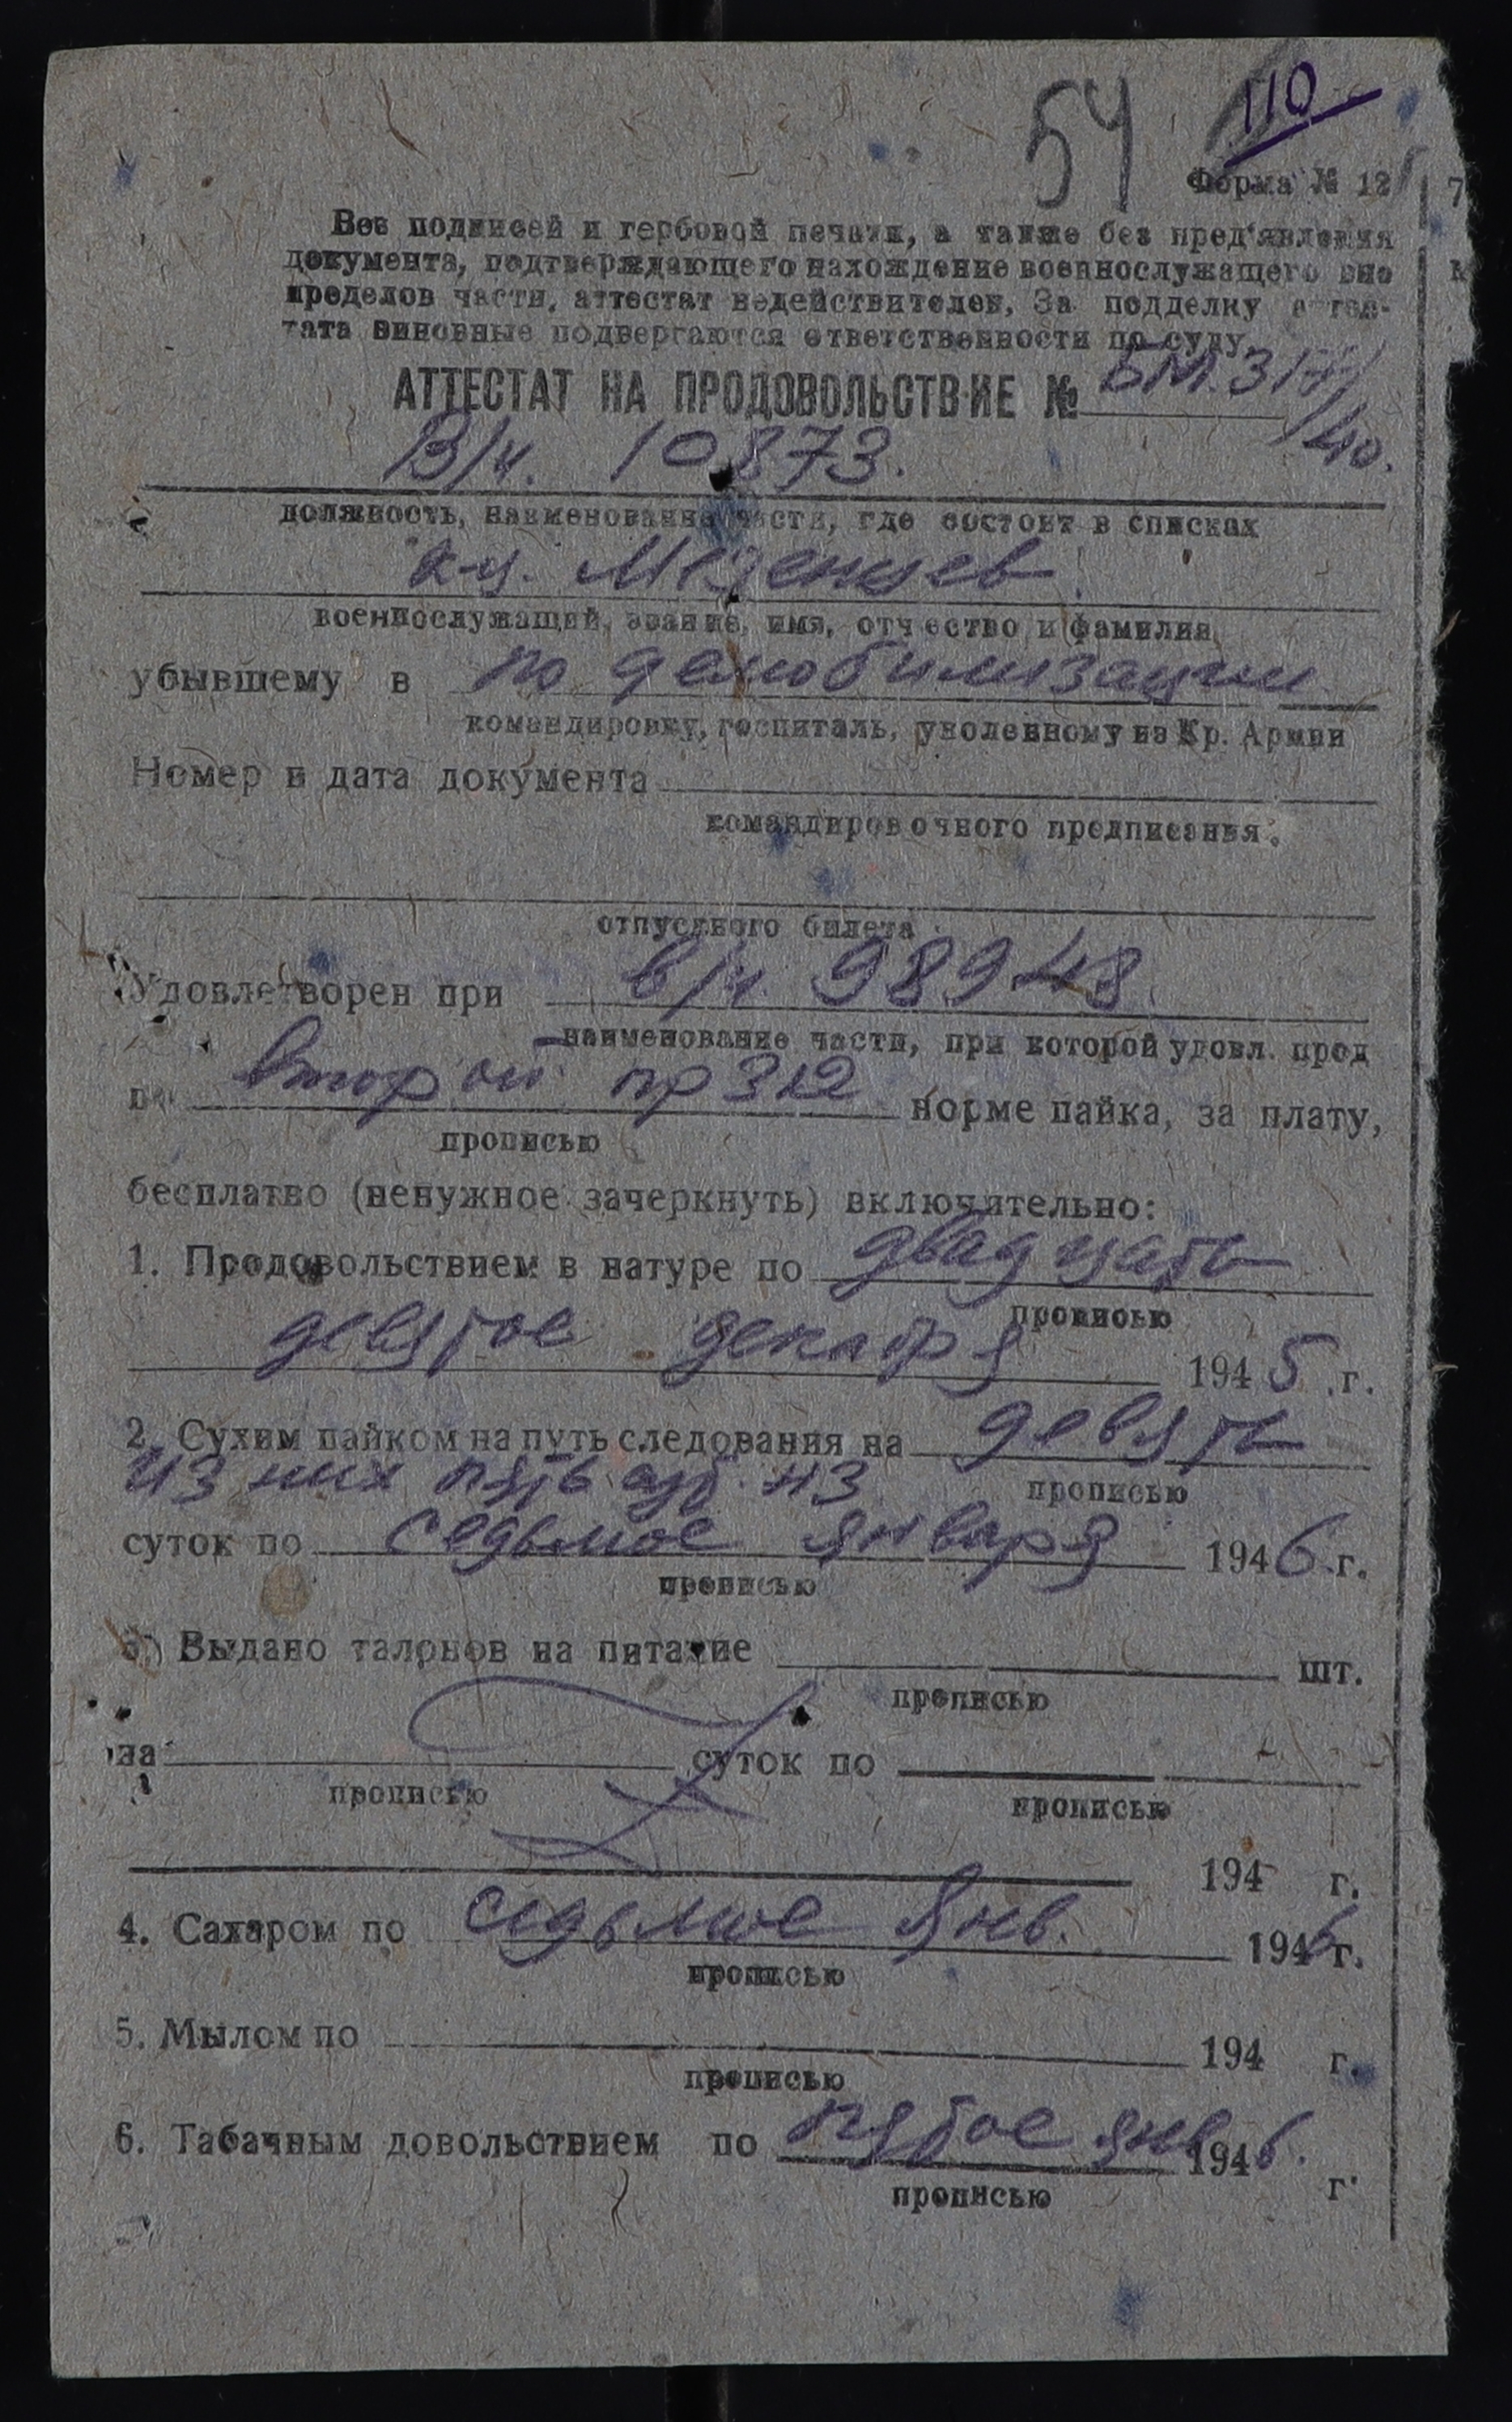 54 110
Форма № 12
Без подписей и гербовой печати, а также без пред'явления
документа, подтверждающего нахождение военнослужащего вне
пределов части, аттестат недействителен, За подделку аттес-
тата виновные подвергаются ответственности по суду.
АТТЕСТАТ НА ПРОДОВОЛЬСТВИЕ № БМ.317/
/40.
В/ч. 10873.
должность, наименование части, где состоит в списках
к-ц. Мезенцев
военнослужащий, звание, имя, отчество и фамилия
убывшему в по демобилизации
командировку, госпиталь, уволенному из Кр. Армии
Номер и дата документа
командировочного предписания.
отпускного билета
Удовлетворен при в/ч 98948
наименование части, при которой удовл. прод
по второй пр 312 норме пайка, за плату,
прописью
бесплатно (ненужное зачеркнуть) включительно:
1. Продовольствием в натуре по двадцать
прописью
девятое декабря 1945 .г.
2. Сухим пайком на путь следования на девять
из них пять НЗ прописью
суток по седьмое января 1946.г.
прописью
3) Выдано талонов на питание шт.
прописью
на суток по
прописью прописью
194 г.
4. Сахаром по седьмое янв. 1946 г.
прописью
5. Мылом по 194 г.
прописью
6. Табачным довольствием по пятое янв 1946. г.
прописью